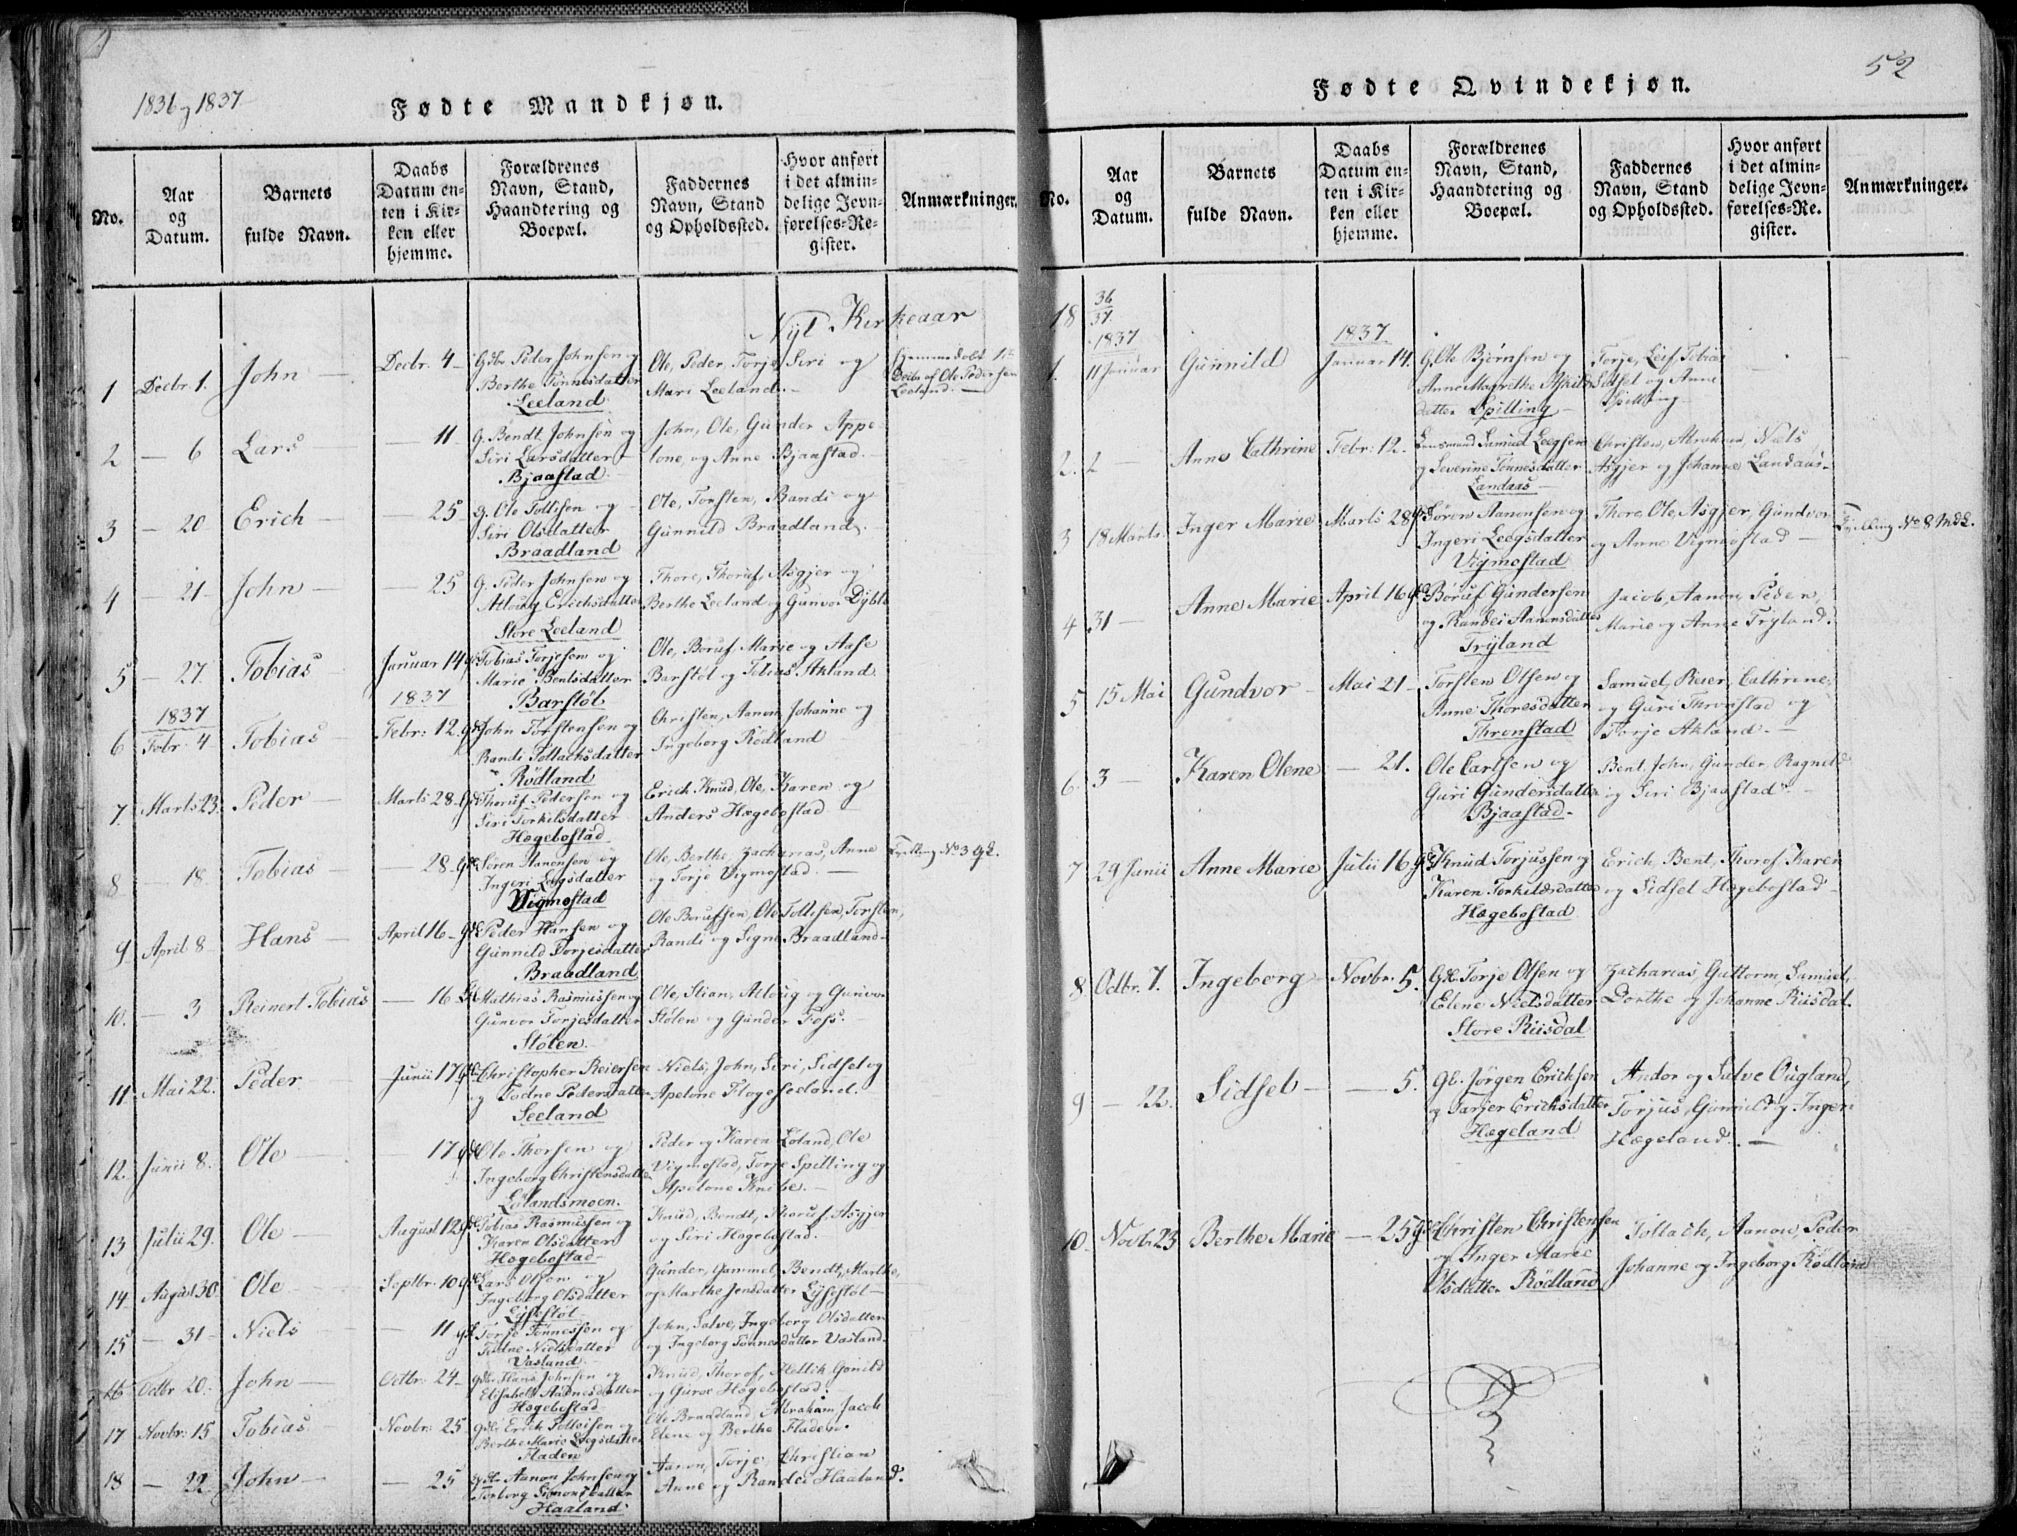 1836 og 1837
Fødte Mandkjøn.
No.
Aar og Datum.
Barnets fulde Navn.
Daabs Datum enten i Kirken eller hjemme.
Forældrenes Navn, Stand, Haandtering og Boepæl.
Faddernes Navn, Stand og Opholdssted.
Hvor anført i det almindelige Jevnførelses-Register.
Anmærkninger.
Nyt Kirkeaar
1 Decbr. 1. John Decbr. 4 Peder Johnsen og Ole, Peder, Torje, Siri og Hjemmedøbt
Berthe Tønnesdatter Mari Leeland. Decbr af Ole Pedersen
Leeland Leeland.
2 — 6 Lars — 11 G. Bendt Johnsen og John, Ole, Gunder Appe
Siri Larsdatter lone, og Anne Bjaastad.
Bjaastad
3 — 20 Erich — 25 g. Ole Tollisen og Ole, Torsten, Randi og
Siri Olsdatter Gunnild Braadland.
Braadland
4 — 21 John — 25 G. Peder Johnsen og Thore, Thoruf, Asgjer og
Atloug Erichsdatter Berthe Leeland og Gunvor
Store Leeland
5 — 27 Tobias Januar 14 Tobias Torjesen og Ole, Boruf, Marie og Aase
Marie Bentsdatter Barstøl og Tobias Akland.
1837 Barstøl
1837
6 Febr: 4 Tobias Febr: 12 John Torstensen og Christen, Aanon, Johanne og
Randi Tollachsdatter Ingeborg Rödland
Rödland
7. Marts 23. Peder Marts 28 Thoruf Pedersen og Erich Knud, Ole, Karen og
Siri Torkilsdatter Anders Hægebostad
Hægebostad
8 — 18 Tobias — 28 Sören Aanonsen og Ole, Berthe, Zacharias, Anne Tvilling No 3
Ingeri Leegsdatter og Torje Vigmostad.
Vigmostad
9 April 8 Hans April 16 Peder Hansen og Ole Borufsen, Ole Tollisen, Torsten,
Gunnild Torjesdatter Randi og Signe Braadland
Braadland
10. — 3 Reinert Tobias — 16 Mathias Rasmussen og Ole, Stian, Atloug og Gunvor
Gunvor Torjesdatter Stølen og Gunder Foss.
Stølen.
11 Mai 22. Peder Junii 17 Christopher Reiersen Niels, John, Siri, Sidsel og
og Todne Pedersdatter Apelone
Seeland
12. Junii 8. Ole — 17 Ole Thorsen og Peder og Karen Loland, Ole
Ingeborg Christensdatter Vigmostad, Torje Spilling og
Lølandsmoen. Apelone Knibe.
13 Julii 29. Ole August 12 Tobias Rasmussen og Knud, Bendt, Thoruf, Asgjer
Karen Olsdatter og Siri Hægebostad.
Hægebostad
14 August 30 Ole Septbr. 10 Lars Olsen og Gunder, Gammel, Bendt, Marthe,
Ingeborg Olsdatter og Marthe Jensdatter Lysestøl
Lysestøl
15 — 31 Niels — 11 Torje Tønnessen og John, Salve, Ingeborg Olsdatter
Todne Nielsdatter og Ingeborg Tønnesdatter Vasland.
Vasland
16 Octbr 20. John Octbr: 24 Hans Johnsen og Knud, Thorof, Mellik Gonild
Elisabeth Aadnesdatter og Guroe Hægebostad.
Hægebostad
17 Novbr: 15 Tobias Novbr: 25 Erich Tolleisen og Ole Braadland, Abraham, Jacob
Berthe Marie Leegsdatter Elene og Berthe Fladen.
Fladen
18 — 22 John — 25 Aanon Johnsen og Aanon, Torje, Christian
Torborg Simonsdatter Anne og Randei Haaland.
Haaland
52
Fødte Qvindekjøn.
No.
Aar og Datum.
Barnets fulde Navn.
Daabs Datum enten i Kirken eller hjemme.
Forældrenes Navn, Stand, Haandtering og Boepæl.
Faddernes Navn, Stand og Opholdssted.
Hvor anført i det almindelige Jevnførelses-Register.
Anmærkninger.
18 36/37
1837 1837
1. 11 Januar Gunnild Januar 14. Ole Bjørnsen og Torje, Leif, Tobias
Anne Magrethe Sidsel og Anne
datter Spilling Spilling
2. 2 — Anne Cathrine Febr: 12. Lensmand Samuel Leegsen Christen, Abraham, Niels,
og Severine Tønnesdatter Asgjer og Johanne Landaas
Landaas
3 18 Marts Inger Marie Marts 28 Sören Aanonsen og Thore, Ole, Asgjer, Gundvor Tvilling No 8
Ingeri Leegsdatter og Anne Vigmostad
Vigmostad
4 31 — Anne Marie April 16 Boruf Gundersen Jacob, Aanon, Peder,
og Randei Aanonsdatter Marie og Anne Tryland.
Tryland
5 15 Mai Gundvor Mai 21 Torsten Olsen og Samuel, Reier, Cathrine,
Anne Thoresdatter og Guri Thronstad og
Thronstad Torje Akland.
6. 3 — Karen Olene — 21. Ole Carlsen og Bent, John, Gunder, Ragnild
Guri Gundersdatter og Siri Bjaastad.
Bjaastad
7 29 Junii Anne Marie Julii 16 Knud Torjussen og Erich, Bent, Thorof, Karen
Karen Torkildsdatter og Sidsel Hægebostad
Hægebostad
8 Octbr. 7. Ingeborg Novbr: 5. Torje Olsen og Zacharias, Guttorm, Samuel,
Elene Nielsdatter Dorthe og Johanne Riisdal.
Store Riisdal
9 — 22. Sidsel — 5. Jörgen Ericksen Andor og Salve Ougland,
og Tarjer Erichsdatter Torjus, Gunnild og Ingeri
Hægeland Hægeland.
10. Novbr 23 Berthe Marie — 25 Christen Christensen Tollach, Aanon, Peder
og Inger Marie Johanne og Ingeborg Rödland
Olsdatter Rödland